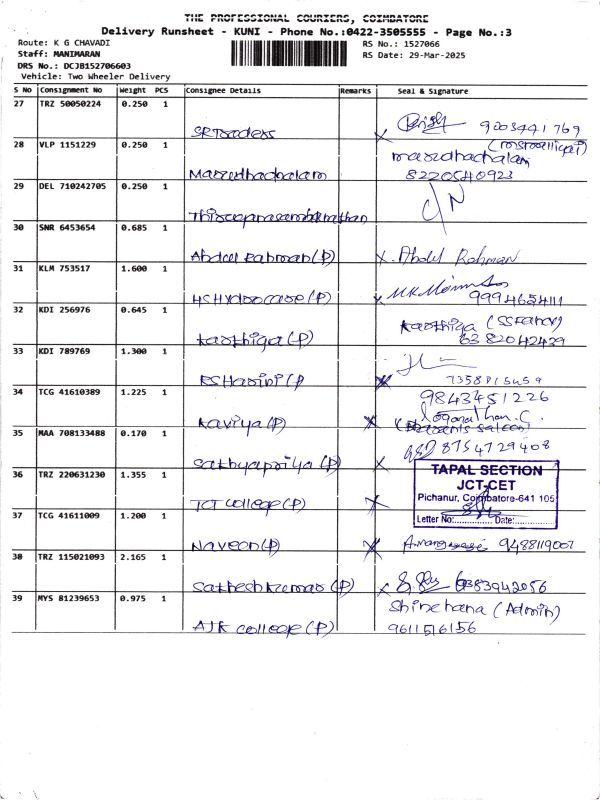 THE PROFESSIONAL COURIERS, COIMBATORE
Delivery Runsheet - KUNI - Phone No.:0422-3505555 - Page No.:3
Route: K G CHAVADI
RS No.: 1527066
Staff: MANIMARAN
RS Date: 29-Mar-2025
DRS No.: DCJB152706603
Vehicle: Two Wheeler Delivery
S No Consignment No Weight PCS Consignee Details Remarks Seal & Signature
27 TRZ 50050224 0.250 1
SR Traders 9203441769
28 VLP 1151229 0.250 1
Marudhachalam marudhachalam
8220540923
29 DEL 710242705 0.250 1
30 SNR 6453654 0.685 1
Abdul rahman(P) x. Abdul Rohman
31 KLM 753517 1.600 1
HS Hydrocare (P) x 9994654111
32 KDI 256976 0.645 1
karthiga (P) karthiga
6382042439
33 KDI 789769 1.300 1
RS Harini (P
34 TCG 41610389 1.225 1
9843451226
Kaviya (P) x Loganathan.C
35 MAA 708133488 0.170 1
8754729408
Sathyapriya (P) x
36 TRZ 220631230 1.355 1
TAPAL SECTION
JCT-CET
Pichanur, Coimbatore-641 105
Letter No:............Date:............
JCT College (P) x
37 TCG 41611009 1.200 1
Naveen(P) x 9488119007
38 TRZ 115021093 2.165 1
Satheshkumar (P) x 6383942056
39 MYS 81239653 0.975 1
Shinehana (Admin)
AJK college (P) 9611516156